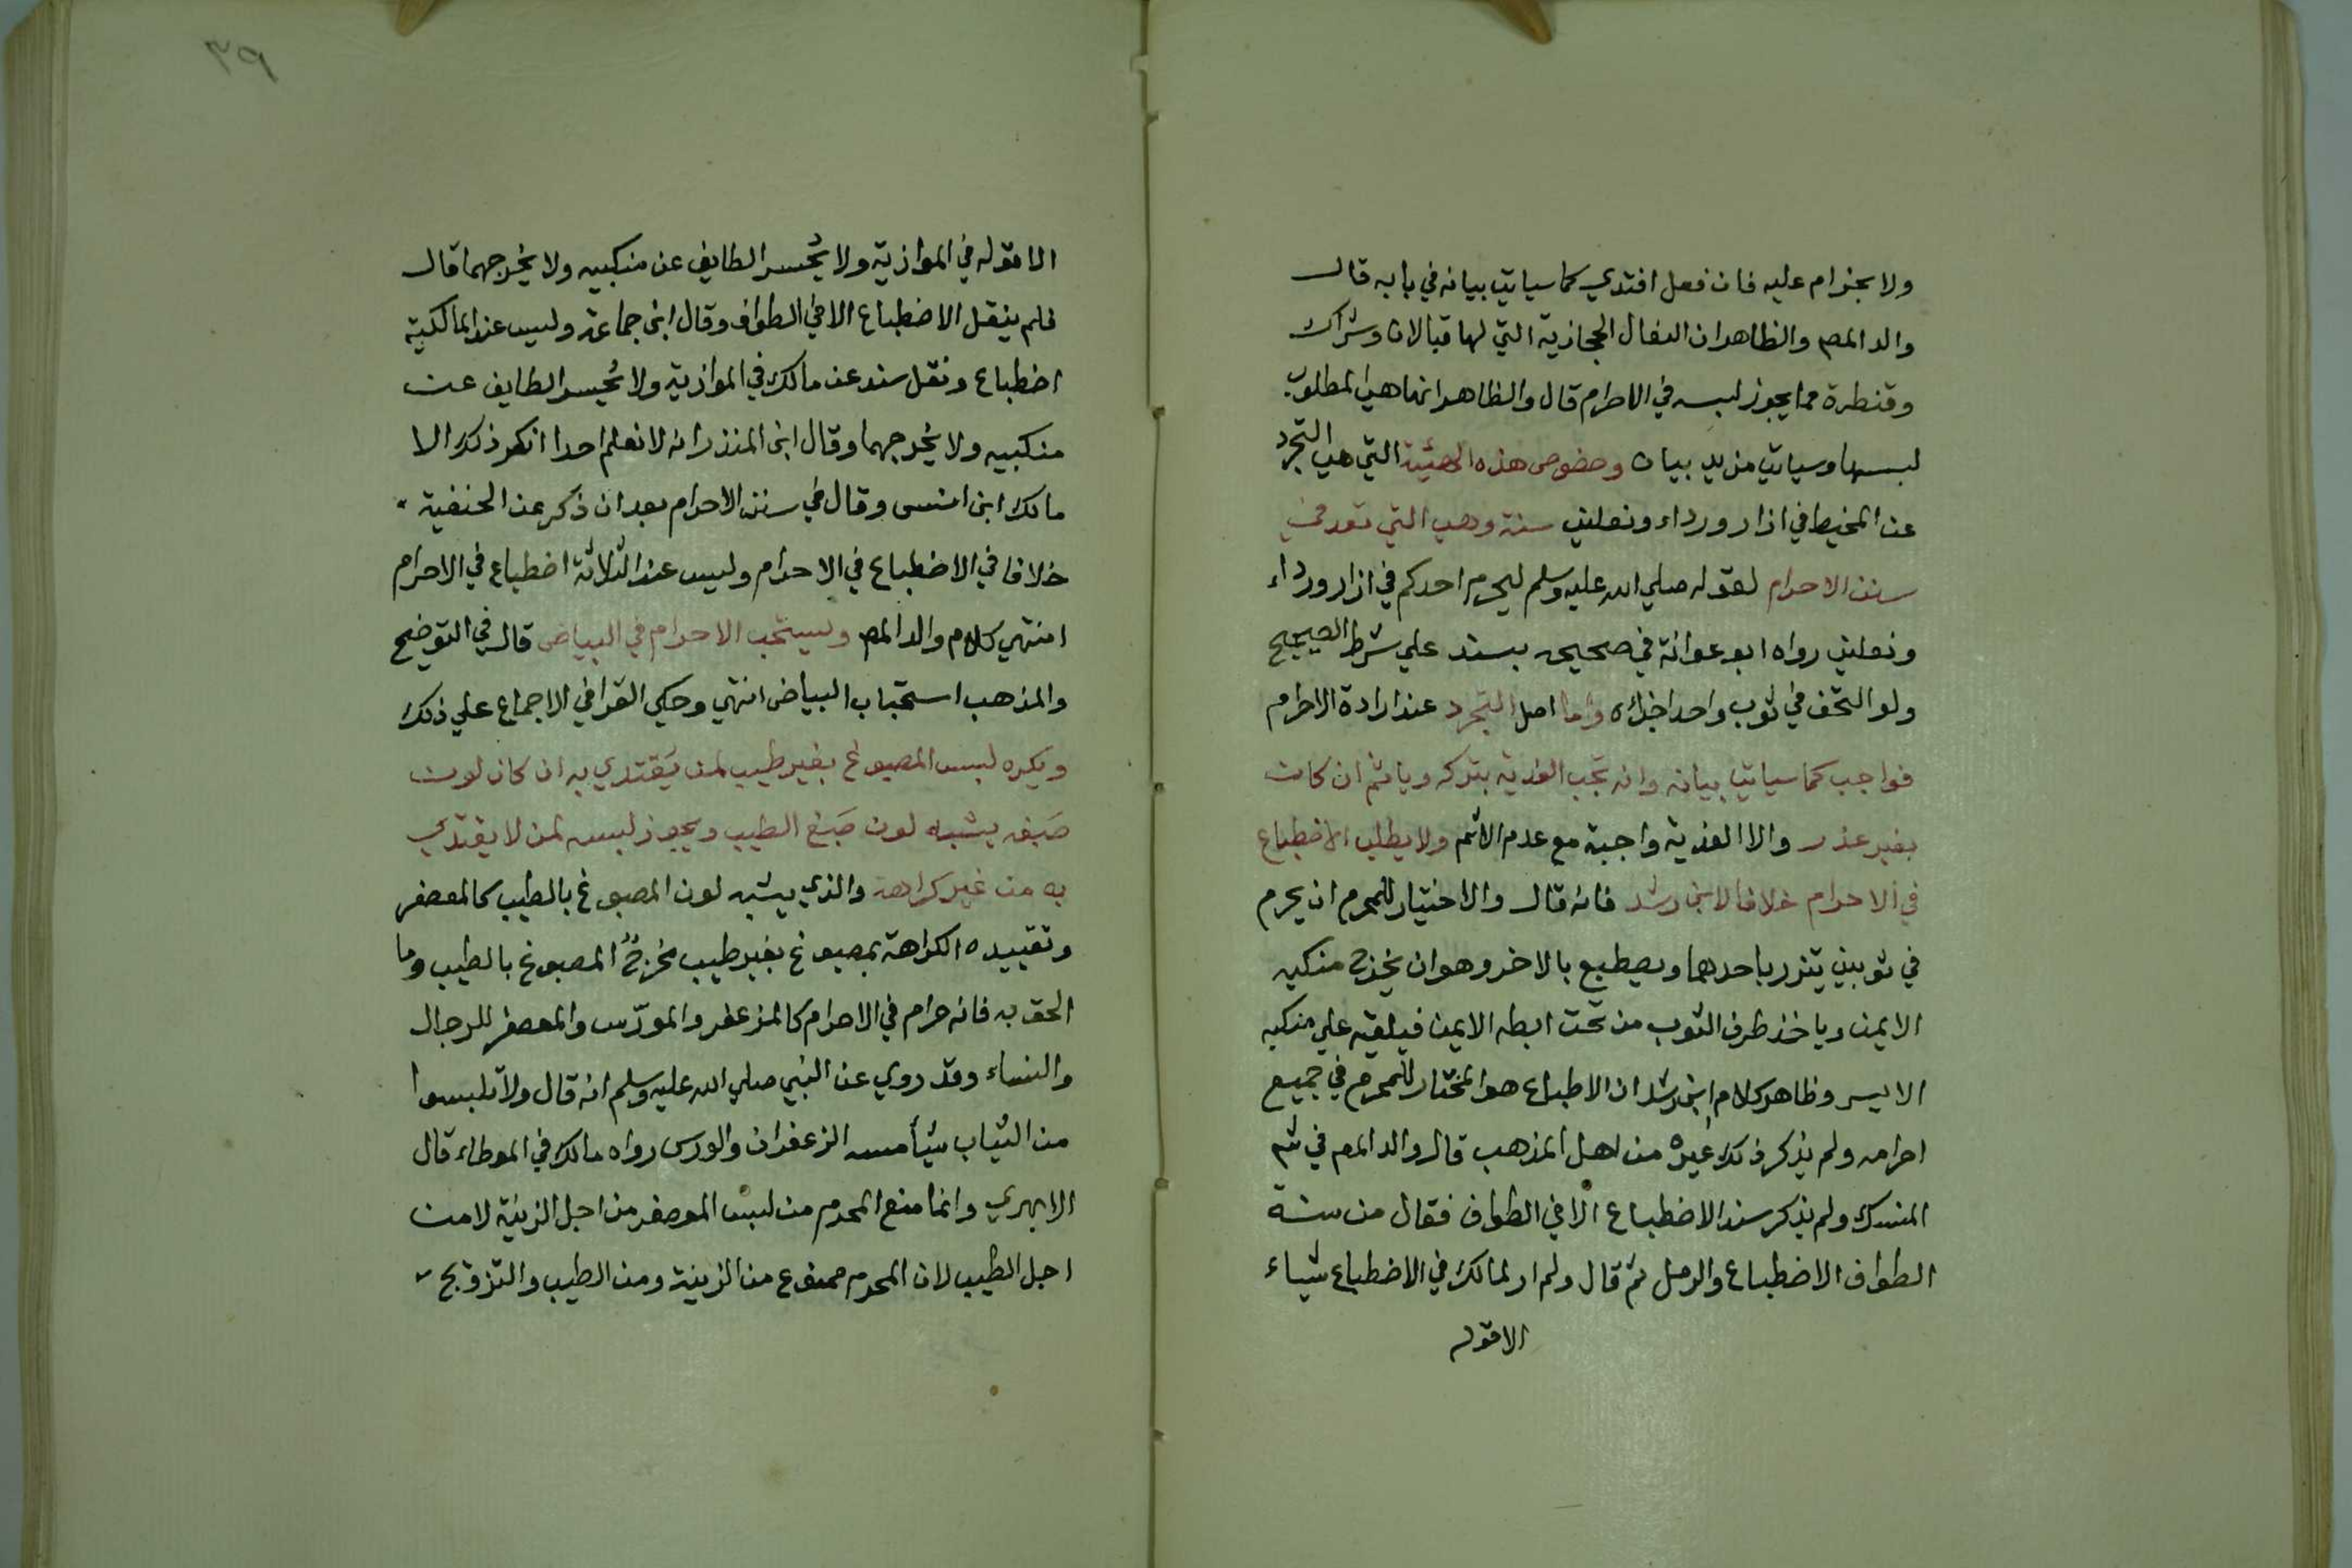 ولا بحزام عليه فان فعل افتدي كما سياتي بيانه في بابه قال
والد المص والظاهر ان النعال الحجازية التي لها قبالان وشراك
وقنطرة مما يجوز لبسه في الاحرام قال والظاهر انها هي المطلوب
لبسها وسياتي مزيد بيان وخصوص هذه الهيئة التي هي التجرد
عن المخيط في ازار ورداء ونعلين سنة وهي التي تعد في
سنن الاحرام لقوله صلي الله عليه وسلم ليحرم احدكم في ازار ورداء
ونعلين رواه ابو عوانة في صحيحه بسند علي شرط الصحيح
ولو التحف في ثوب واحد اجزاه واما اصل التجرد عند ارادة الاحرام
فواجب كما سياتي بيانه وانه تجب الفدية بتركه وياثم ان كان
بغير عذر والا الفدية واجبة مع عدم الاثم ولا يطلب الاضطباع
في الاحرام خلافا لابن رشد فانه قال والاختيار للمحرم ان يحرم
في ثوبين يتزر باحدهما ويضطبع بالاخر وهو ان يخرج منكبه
الايمن وياخذ طرف الثوب من تحت ابطه الايمن فيلقيه علي منكبه
الايسر وظاهر كلام ابن رشد ان الاطباع هو المختار للمحرم في جميع
احرامه ولم يذكر ذلك غيره من اهل المذهب قال والد المص في شم
المنسك ولم يذكر سند الاضطباع الا في الطواف فقال من سنة
الطواف الاضطباع والرمل ثم قال ولم ار لمالك في الاضطباع شياء
الا قوله
٣٩
الا قوله في الموازية ولا يحسر الطايف عن منكبيه ولا يخرجهما قال
فلم ينقل الاضطباع الا في الطواف وقال ابن جماعة وليس عند المالكية
اضطباع ونقل سند عن مالك في الموازية ولا يحسر الطايف عن
منكبيه ولا يخرجهما وقال ابن المنذر انه لا نعلم احدا انكر ذلك الا
مالك ابن انس وقال في سنن الاحرام بعد ان ذكر عن الحنفية
خلافا في الاضطباع في الاحرام وليس عند الثلاثة اضطباع في الاحرام
انتهي كلام والد المص ويستحب الاحرام في البياض قال في التوضيح
والمذهب استحباب البياض انتهي وحكي القرافي الاجماع علي ذلك
ويكره لبس المصبوغ بغير طيب لمن يَقتدي به ان كان لون
صَبغه يشبه لون صَبغ الطيب ويجوز لبسه لمن لا يقتدي
به من غير كراهة والذي يشبه لون المصبوغ بالطيب كالمعصفر
وتقييده الكراهة بمصبوغ بغير طيب مخرج المصبوغ بالطيب وما
الحق به فانه حرام في الاحرام كالمزعفر والمورّس والمعصفر للرجال
والنساء وقد روي عن النبي صلي الله عليه وسلم انه قال ولا تلبسوا
من الثياب شيأ مسه الزعفران والورس رواه مالك في الموطاء قال
الابهري وانما منع المحرم من لبس المعصفر من اجل الزينة لا من
اجل الطيب لان المحرم ممنوع من الزينة ومن الطيب والتزويج